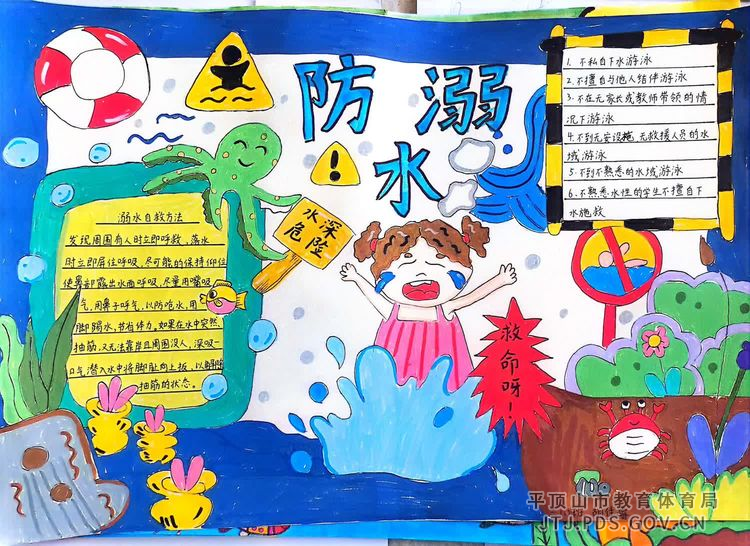 防溺
水
1. 不私自下水游泳
2. 不擅自与他人结伴游泳
3. 不在无家长或教师带领的情
况下游泳
4. 不到无安设施, 无救援人员的水
域游泳
5. 不到不熟悉的水域游泳
6. 不熟悉水性的学生不擅自下
水施救
溺水自救方法
发现周围有人时立即呼救, 落水
时立即屏住呼吸, 尽可能的保持仰位
使鼻部露出水面呼吸, 尽量用嘴吸
气, 用鼻子呼气, 以防呛水, 用
脚踢水, 节省体力。如果在水中突然
抽筋, 又无法靠岸且周围没人, 深吸一
口气潜入水中将脚趾向上扳, 以解除
抽筋的状态。
水深
危险
救命呀!
平顶山市教育体育局
JTJ.PDS.GOV.CN